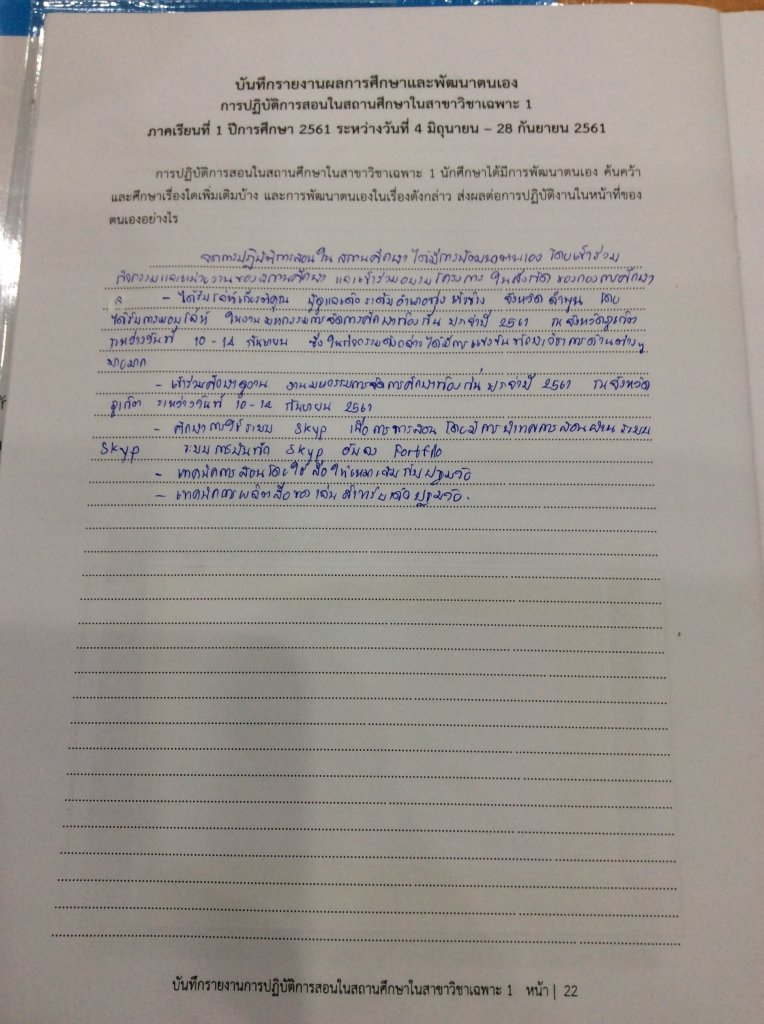 บันทึกรายงานผลการศึกษาและพัฒนาตนเอง
การปฏิบัติการสอนในสถานศึกษาในสาขาวิชาเฉพาะ 1
ภาคเรียนที่ 1 ปีการศึกษา 2561 ระหว่างวันที่ 4 มิถุนายน – 28 กันยายน 2561
การปฏิบัติการสอนในสถานศึกษาในสาขาวิชาเฉพาะ 1 นักศึกษาได้มีการพัฒนาตนเอง ค้นคว้า
และศึกษาเรื่องใดเพิ่มเติมบ้าง และการพัฒนาตนเองในเรื่องดังกล่าว ส่งผลต่อการปฏิบัติงานในหน้าที่ของ
ตนเองอย่างไร
จากการปฏิบัติการสอนใน สถานศึกษา ได้มีการพัฒนาตนเอง โดยเข้าร่วม
กิจกรรมและหน่วยงานของสถานศึกษา และเข้าร่วมอบรมโครงการ ในสังกัด ของกองการศึกษา
- ได้รับโล่ห์เกียรติคุณ ผู้ดูแลเด็ก ระดับอำเภอทุ่งหัวช้าง จังหวัด ลำพูน โดย
ได้รับการมอบโล่ห์ ในงาน มหกรรมการจัดการศึกษาท้องถิ่น ประจำปี 2561 ณ จังหวัดภูเก็ต
ระหว่างวันที่ 10 - 14 กันยายน ซึ่งในกิจกรรมดังกล่าวได้มีการแข่งขันทักษะวิชาการด้านต่างๆ
มากมาย
- เข้าร่วมศึกษาดูงาน งานมหกรรมการจัดการศึกษาท้องถิ่น ประจำปี 2561 ณ จังหวัด
ภูเก็ต ระหว่างวันที่ 10-14 กันยายน 2561
- ศึกษาการใช้ระบบ Skyp เพื่อการสอน โดยมีการนิเทศการสอนผ่าน ระบบ
Skyp ระบบการบันทึก Skyp ลง Portflio
- เทคนิคการสอนโดยใช้สื่อให้เหมาะสมกับปฐมวัย
- เทคนิคการผลิตสื่อของเล่นสำหรับเด็กปฐมวัย.
บันทึกรายงานการปฏิบัติการสอนในสถานศึกษาในสาขาวิชาเฉพาะ 1 หน้า | 22